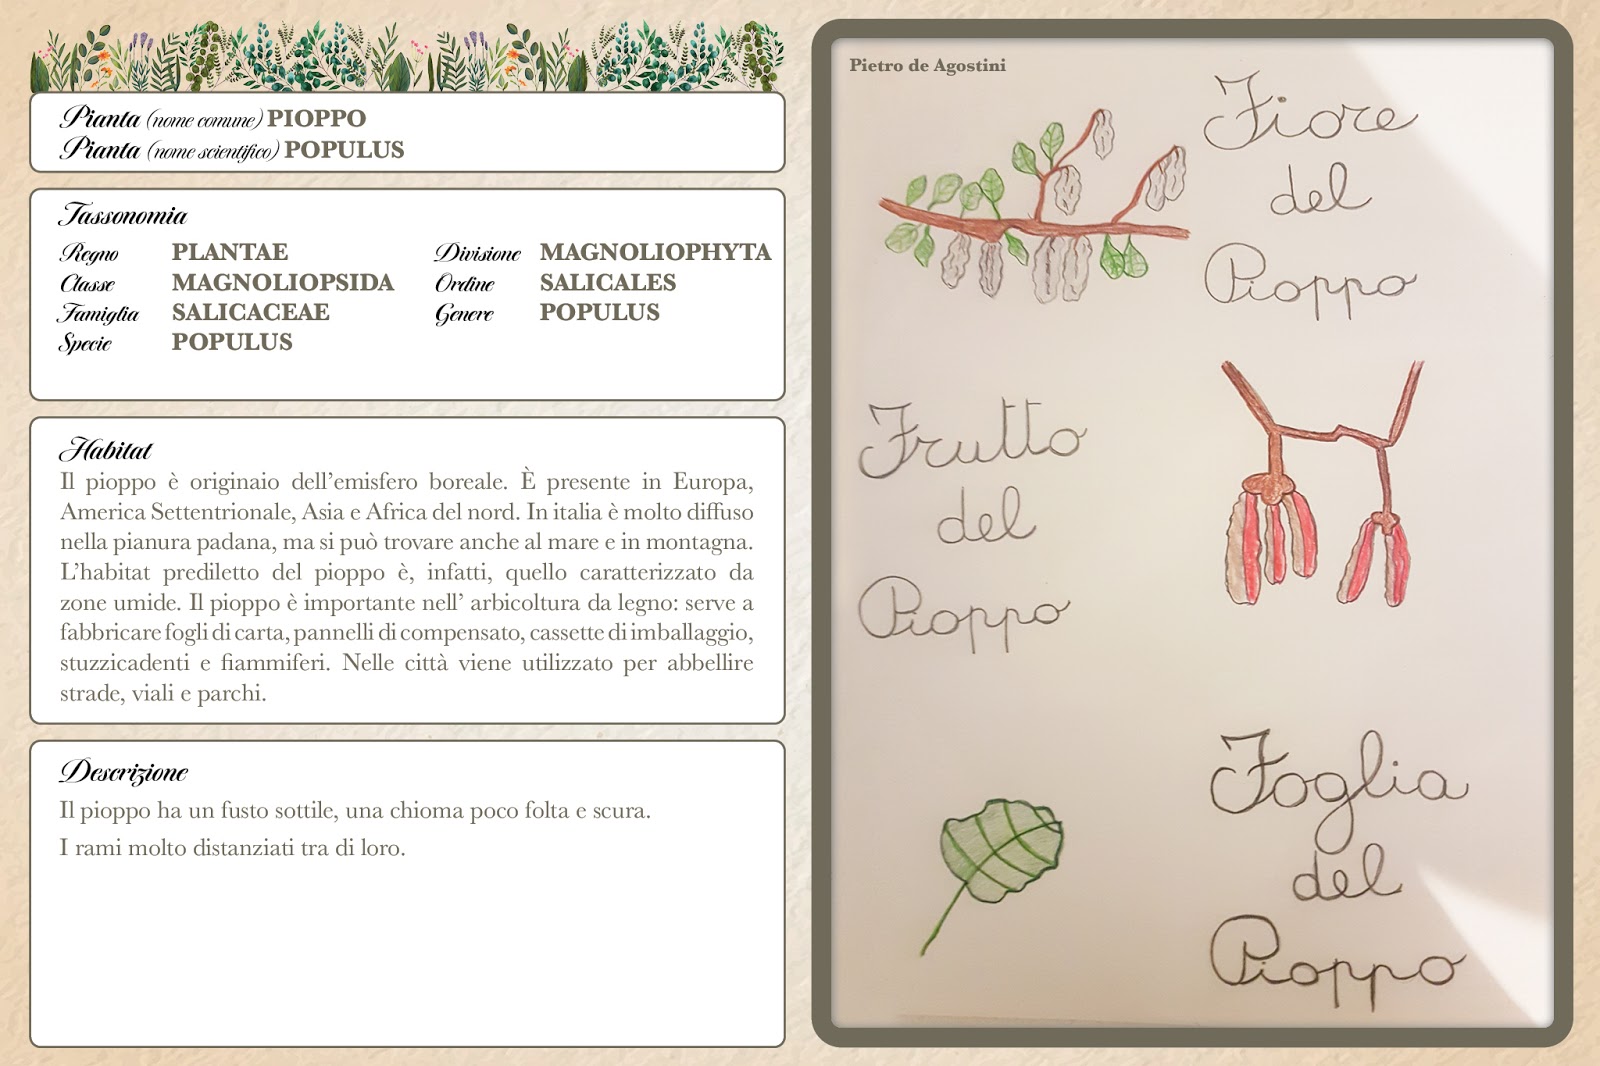 Pianta (nome comune) PIOPPO
Pianta (nome scientifico) POPULUS
Tassonomia
Regno PLANTAE Divisione MAGNOLIOPHYTA
Classe MAGNOLIOPSIDA Ordine SALICALES
Famiglia SALICACEAE Genere POPULUS
Specie POPULUS
Habitat
Il pioppo è originaio dell’emisfero boreale. È presente in Europa,
America Settentrionale, Asia e Africa del nord. In italia è molto diffuso
nella pianura padana, ma si può trovare anche al mare e in montagna.
L’habitat prediletto del pioppo è, infatti, quello caratterizzato da
zone umide. Il pioppo è importante nell’ arbicoltura da legno: serve a
fabbricare fogli di carta, pannelli di compensato, cassette di imballaggio,
stuzzicadenti e fiammiferi. Nelle città viene utilizzato per abbellire
strade, viali e parchi.
Descrizione
Il pioppo ha un fusto sottile, una chioma poco folta e scura.
I rami molto distanziati tra di loro.
Pietro de Agostini
Fiore
del
Pioppo
Frutto
del
Pioppo
Foglia
del
Pioppo